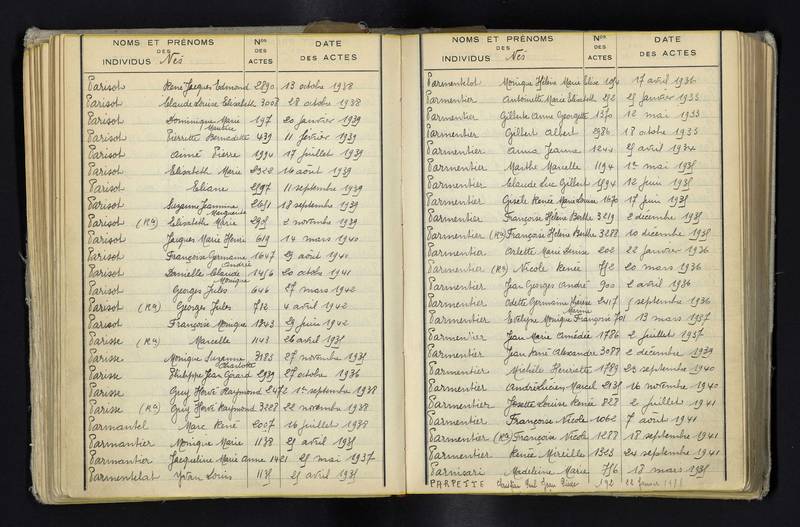 NOMS ET PRÉNOMS DES INDIVIDUS Nés
Nos DES ACTES
DATE DES ACTES
Parisot René Jacques Edmond 2890 13 octobre 1938
Parisot Claude Louise Elisabeth 3008 28 octobre 1938
Parisot Dominique Marie 197 20 janvier 1939
Maurice
Parisot Pierrette Bernadette 439 11 février 1939
Parisot Aimé Pierre 1994 17 juillet 1939
Parisot Elisabeth Marie 16 août 1939
Parisot Eliane 11 septembre 1939
Parisot Suzanne Jeannine 18 septembre 1939
Marguerite
Parisot (Ra) Elisabeth Marie 2 novembre 1939
Parisot Jacques Marie Henri 619 14 mars 1940
Parisot Françoise Germaine 1647 août 1940
André
Parisot Danielle Claude 20 octobre 1941
Monique
Parisot Georges Jules 646 27 mars 1942
Parisot (Ra) Georges Jules 712 4 avril 1942
Parisot Françoise Monique 1843 juin 1942
Parisse (Ra) Marcelle 1143 26 avril
Parisse Monique Suzanne 27 novembre
Charlotte
Parisse Philippe Jean Gérard 2939 27 octobre 1936
Parisse Guy Hervé Raymond 2472 1er septembre 1938
Parisse (Ra) Guy Hervé Raymond 3208 22 novembre 1938
Parmantel Marc René 2007 16 juillet 1938
Parmantier Monique Marie 1138 avril
Parmantier Jacqueline Marie Anne 1421 mai 1937
Parmentelat Yvan Louis avril
NOMS ET PRÉNOMS DES INDIVIDUS Nés
Nos DES ACTES
DATE DES ACTES
Parmentelot Monique Hélène Marie Elise 17 avril 1936
Parmentier Antoinette Marie Elisabeth 212 janvier 1933
Parmentier Gilberte Anne Georgette 1370 12 mai 1933
Parmentier Gilbert Albert 2986 18 octobre 1933
Parmentier Anna Jeanne 1244 avril 1934
Parmentier Marthe Marcelle 1194 1er mai
Parmentier Claude Luc Gilbert 1594 12 juin
Parmentier Gisèle Renée Marie Louise 1670 17 juin
Parmentier Françoise Hélène Berthe 3219 2 décembre
Parmentier (Ra) Françoise Hélène Berthe 3288 10 décembre
Parmentier Arlette Marie Denise 202 22 janvier 1936
Parmentier (Ra) Nicole Renée 712 20 mars 1936
Parmentier Jean Georges André 900 2 avril 1936
Parmentier Odette Germaine 2417 septembre 1936
Marina
Parmentier Evelyne Monique Françoise 701 13 mars 1937
Parmentier Jean Marie Amédée 1786 2 juillet 1937
Parmentier Jean René Alexandre 3087 2 décembre 1939
Parmentier Michèle Henriette 1789 23 septembre 1940
Parmentier André Lucien Marcel 16 novembre 1940
Parmentier Josette Louise Renée 828 2 juillet 1941
Parmentier Françoise Nicole 1062 7 août 1941
Parmentier (Ra) Françoise Nicole 1288 18 septembre 1941
Parmentier Renée Mireille 1323 24 septembre 1941
Parnisari Madeleine Marie 756 18 mars
PARPETTE 192